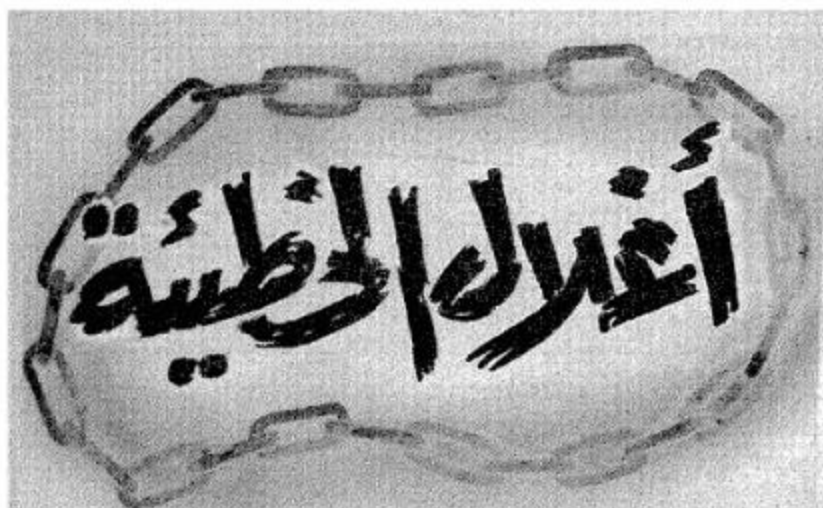 أغلال الخطيئة